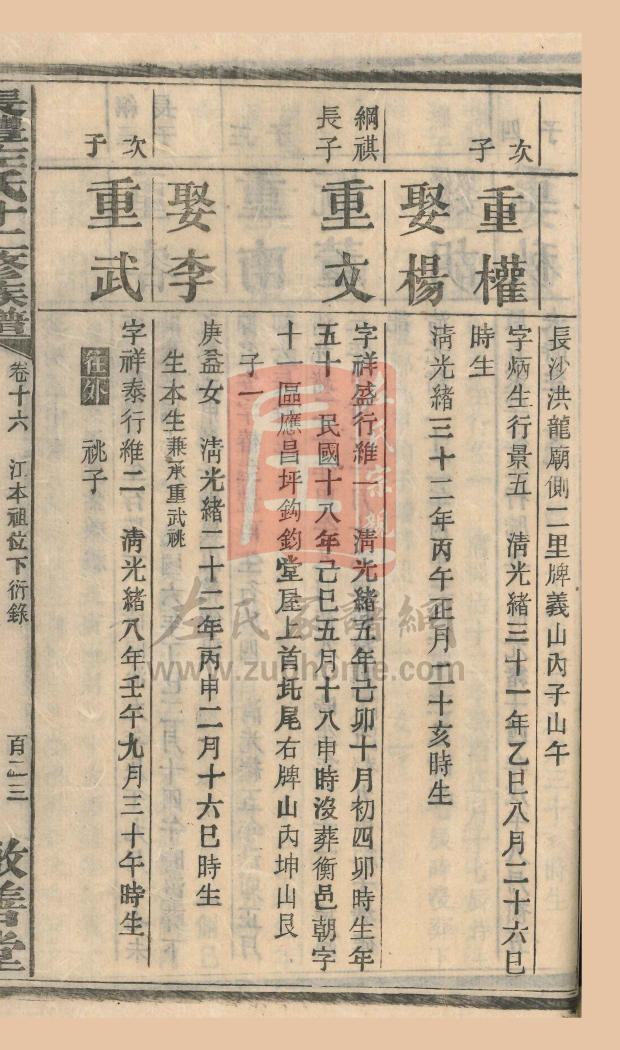 長沙洪龍廟側二里牌義山內子山午
次子
重權
字炳生行景五 清光緒三十一年乙巳八月二十六巳
時生
娶楊
清光緒三十二年丙午正月二十亥時生
綱祺
長子
重文
字祥盛行維一 清光緒五年己卯十月初四卯時生年
五十一民國十八年己巳五月十八申時沒葬衡邑朝字
十一區應昌坪鈎鈞堂屋上首坵尾右牌山內坤山艮
子一
娶李
庚益女 清光緒二十二年丙申二月十六巳時生
生本生兼承重武祧
次子
重武
字祥泰行維二 清光緒八年壬午九月三十午時生
往外 祧子
長豐左氏十二修族譜
卷十六 江本祖位下衍錄
百二三
敦善堂
左氏宗親
左氏家譜網
www.zuohome.com